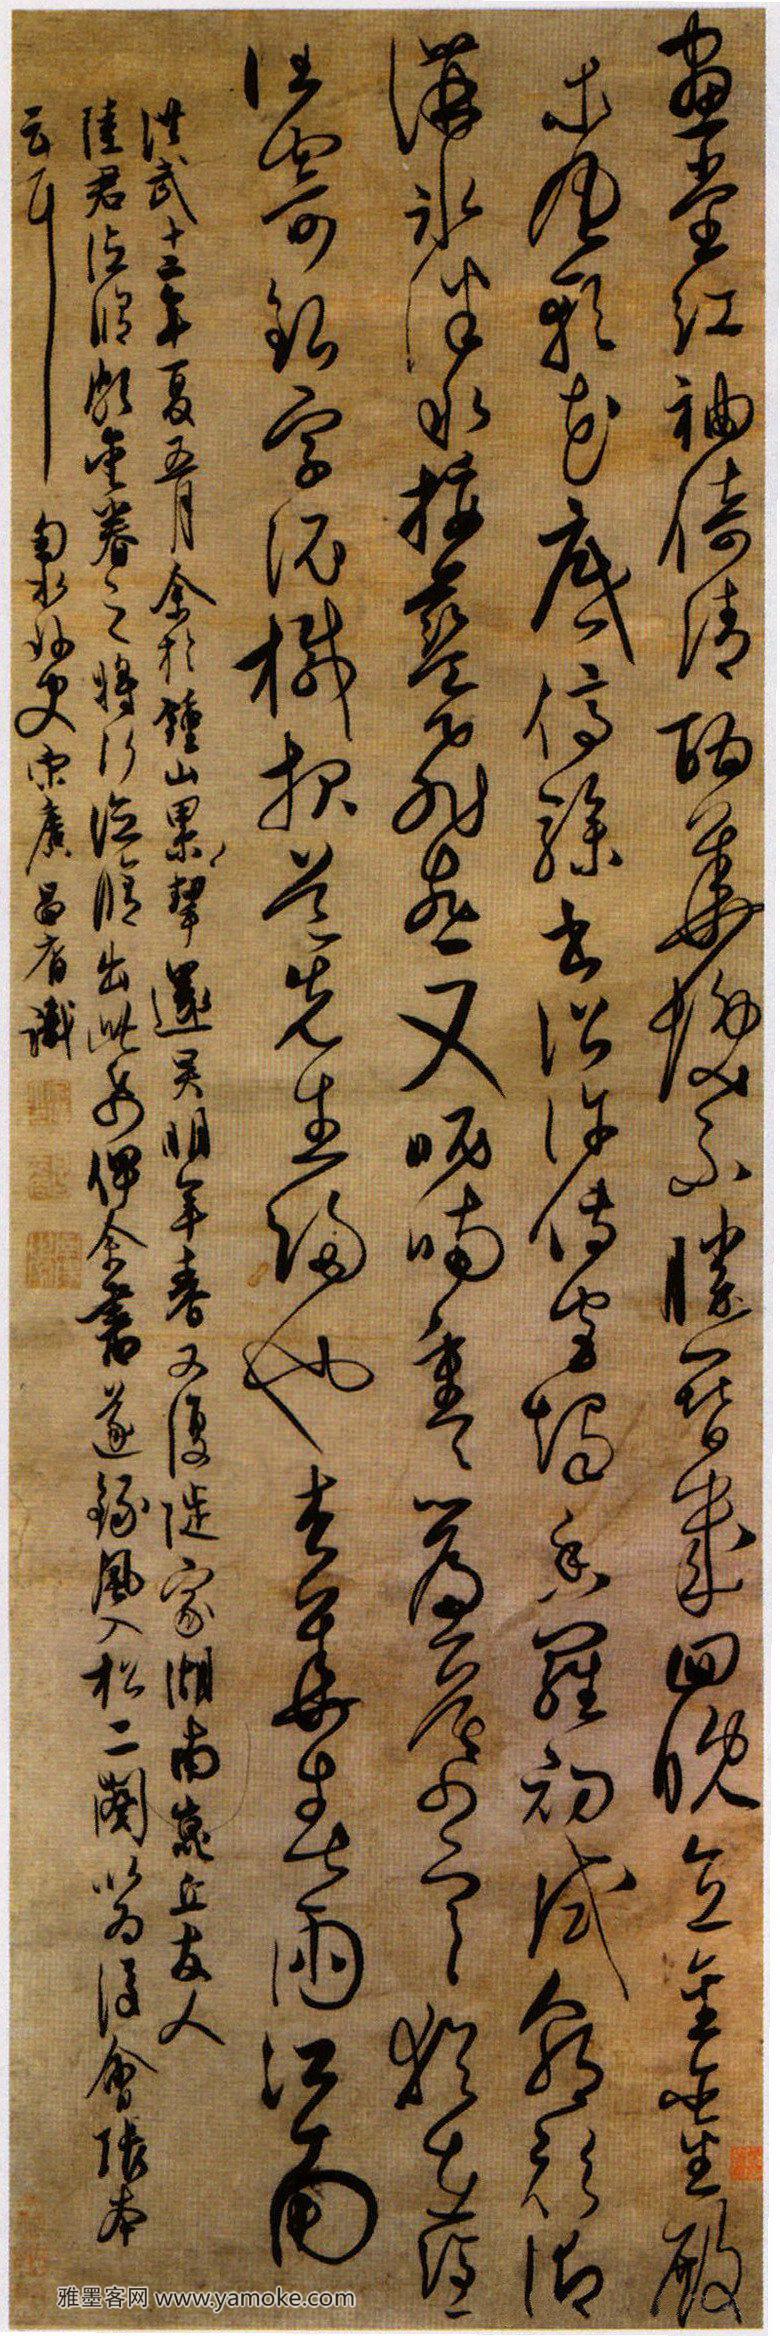 畫堂紅袖倚清酣華髮不勝簪幾回晚直金鑾殿
東風軟花底停驂書詔許傳宮燭香羅初試朝衫御
溝冰泮水挼藍飛燕又呢喃重重簾幕寒猶在憑
誰寄銀字泥緘報道先生歸也杏花春雨江南
洪武十二年夏五月余於鍾山累挈還吳明年春又復徙家湖南嵩丘友人
陸君德脩頗重眷之將行德脩出此帋俾余書遂錄風入松二闋以爲後會張本
云爾 外史宋廣昌裔識
雅墨客网 www.yamoke.com